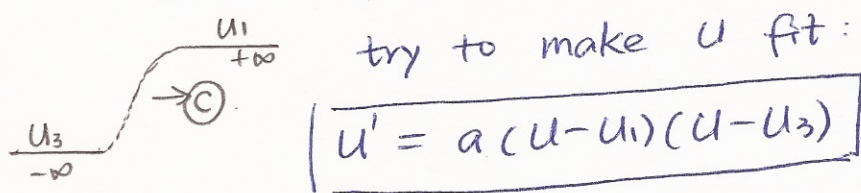 u₁
+∞
→ⓒ
u₃
-∞
try to make u fit:
u' = a(u-u₁)(u-u₃)